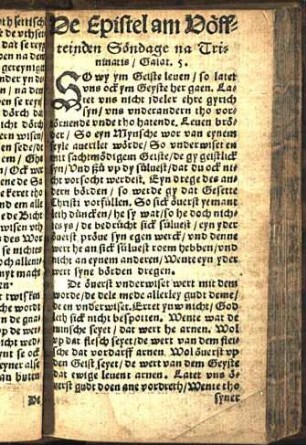 De Epistel am Vöff-
teinden Söndage na Tri-
nitatis / Galat. 5.
SO wy ym Geiste leuen / so latet
vns ock ym Geyste her gaen. La-
tet vns nicht ydeler ehre gyrich
syn / vns vnderandern tho vor-
törnende vnde tho hatende. Leuen brö-
der / So eyn Mynsche wor van eynem
feyle auerilet wörde / So vnderwiset en
mit sachtmödigem Geiste / de gy geistlick
syn / Vnd sü vp dy sülvest / dat du ock nicht
vorsocht werdest. Eyn drege des an-
dern börden / so werde gy dat Gesette
Christi vorfüllen. So sick överst yemant
leth düncken / he sy wat / so he doch nich-
tes ys / de bedrücht sick sülvest / eyn yder
överst pröve syn egen werck / vnd denne
wert he an sick sülvest roem hebben / vnd
nicht an eynem anderen / Wente eyn yder
wert syne börden dregen.
De överst vnderwiset wert mit dem
worde / de dele mede allerley gudt deme /
de en vnderwiset. Erret yuw nicht / God
leth sick nicht bespotten. Wente wat de
minsche seyet / dat wert he arnen. Wol
vp dat flesch seyet / de wert van dem flei-
sche dat vordarff arnen. Wol överst vp
den Geist seyet / de wert van dem Geyste
dat ewige leuent arnen. Latet vns ö-
verst gudt doen ane vordreth / Wente tho
syner